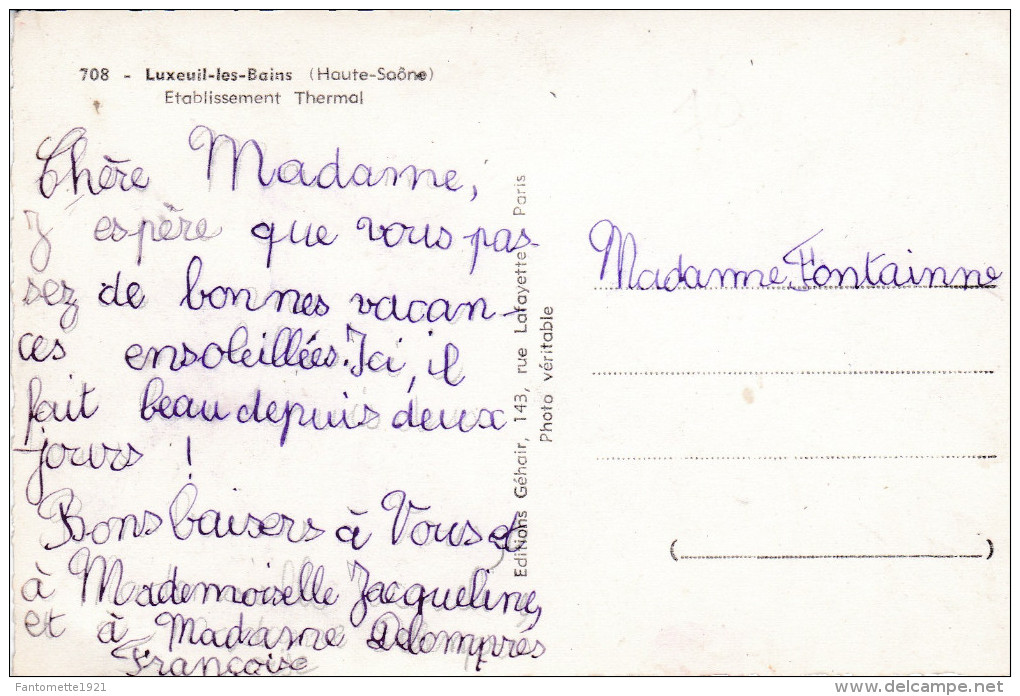 708 - Luxeuil-les-Bains (Haute-Saône)
Etablissement Thermal
Chère Madame,
J'espère que vous pas-
sez de bonnes vacan-
ces ensoleillées. Ici, il
fait beau depuis deux
jours !
Bons baisers à Vous et
à Mademoiselle Jacqueline,
et à Madame Delomprés
Françoise
Editions Géhair, 143, rue Lafayette Paris
Photo véritable
Madame Fontainne
( )
Fantomette1921
www.delcampe.net